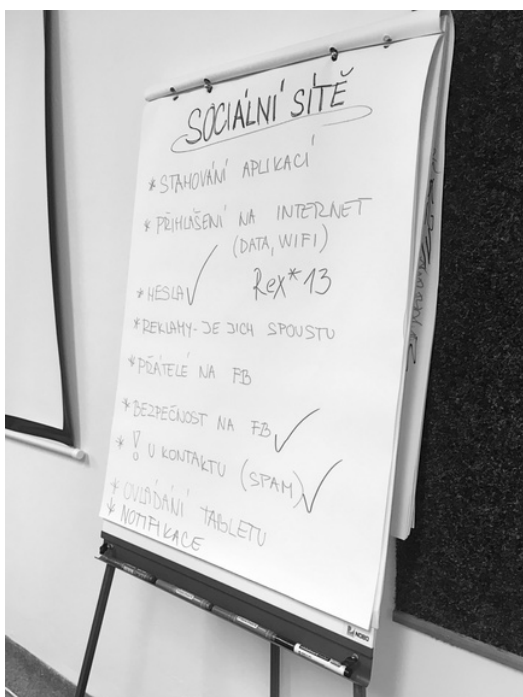 SOCIÁLNÍ SÍTĚ
* STAHOVÁNÍ APLIKACÍ
* PŘIHLÁŠENÍ NA INTERNET
(DATA, WIFI)
* HESLA ✓ Rex*13
* REKLAMY - JE JICH SPOUSTU
* PŘÁTELÉ NA FB
* BEZPEČNOST NA FB ✓
* ! U KONTAKTU (SPAM) ✓
* OVLÁDÁNÍ TABLETU
* NOTIFIKACE
NOBO